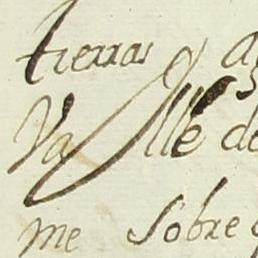 tierras y a
Valle de
me sobre